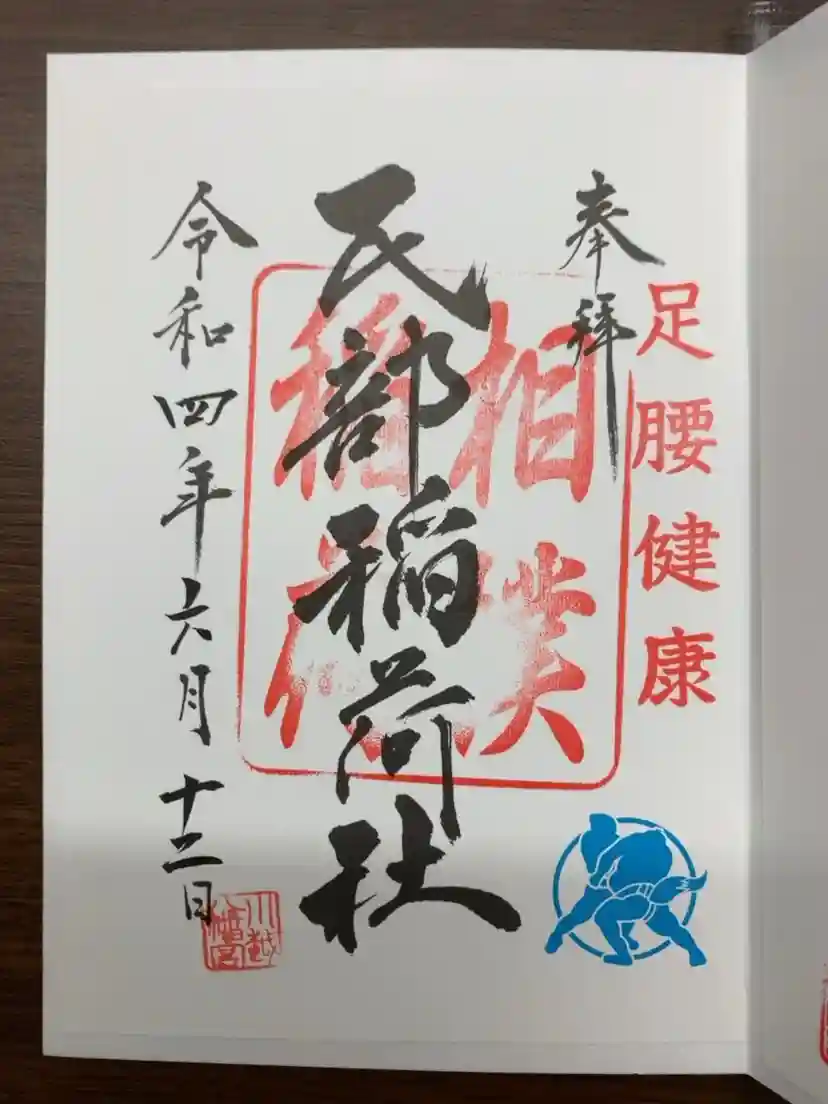 奉拝
足腰健康
相撲
稲荷
民部稲荷社
令和四年六月十二日
川越
八幡宮